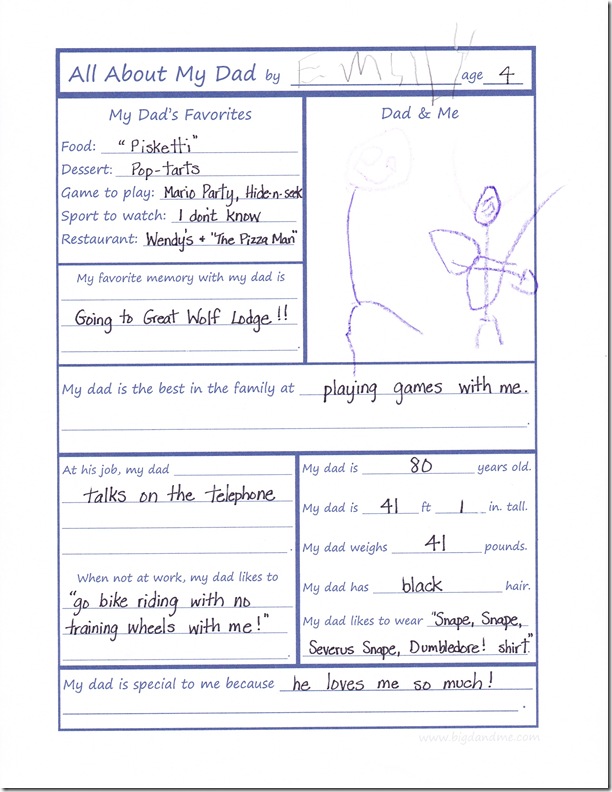 All About My Dad by Emily age 4
My Dad's Favorites
Food: "Pisketti"
Dessert: Pop-tarts
Game to play: Mario Party, Hide-n-seek
Sport to watch: I don't know
Restaurant: Wendy's + "The Pizza Man"
Dad & Me
My favorite memory with my dad is
Going to Great Wolf Lodge!!
.
My dad is the best in the family at playing games with me.
.
At his job, my dad
talks on the telephone
.
When not at work, my dad likes to
"go bike riding with no
training wheels with me!"
.
My dad is 80 years old.
My dad is 41 ft 1 in. tall.
My dad weighs 41 pounds.
My dad has black hair.
My dad likes to wear "Snape, Snape,
Severus Snape, Dumbledore! shirt."
My dad is special to me because he loves me so much!
.
www.bigdandme.com